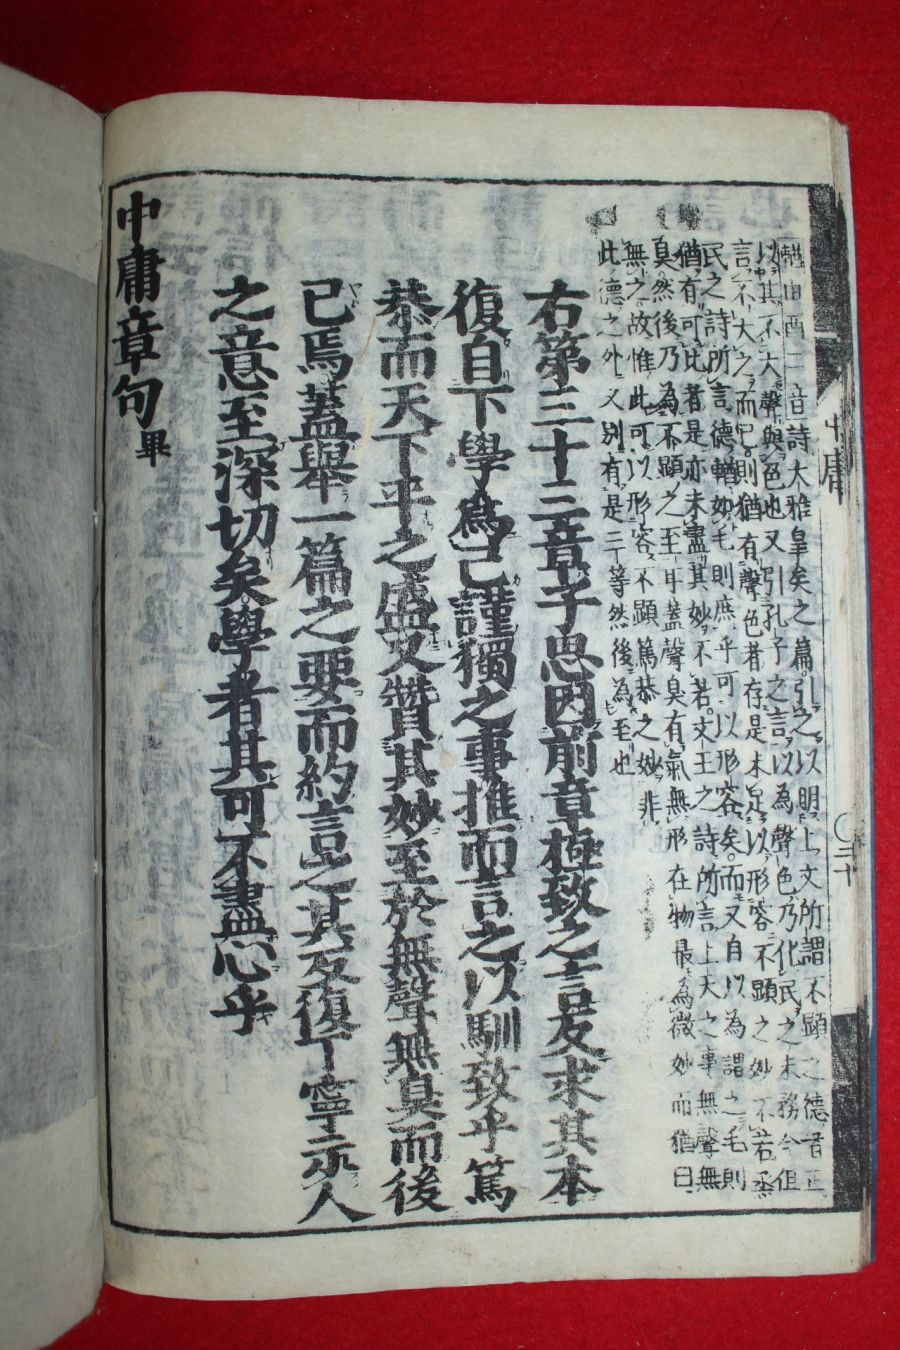 輶由酉二音詩大雅皇矣之篇引之以明上文所謂不顯之德者正
以其不大聲與色也又引孔子之言以為聲色乃化民之末務今但
言不大之而已則猶有聲色者存是未足以形容不顯之妙不若烝
民之詩所言德輶如毛則庶乎可以形容矣而又自以為謂之毛則
猶有可比者是亦未盡其妙不若文王之詩所言上天之事無聲無
臭然後乃為不顯之至耳蓋聲臭有氣無形在物最為微妙而猶曰
無之故惟此可以形容不顯篤恭之妙非
此德之外又別有是三等然後為至也
右第三十三章子思因前章極致之言反求其本
復自下學為己謹獨之事推而言之以馴致乎篤
恭而天下平之盛又贊其妙至於無聲無臭而後
已焉蓋舉一篇之要而約言之其反復丁寧示人
之意至深切矣學者其可不盡心乎
中庸章句畢
中庸
三十